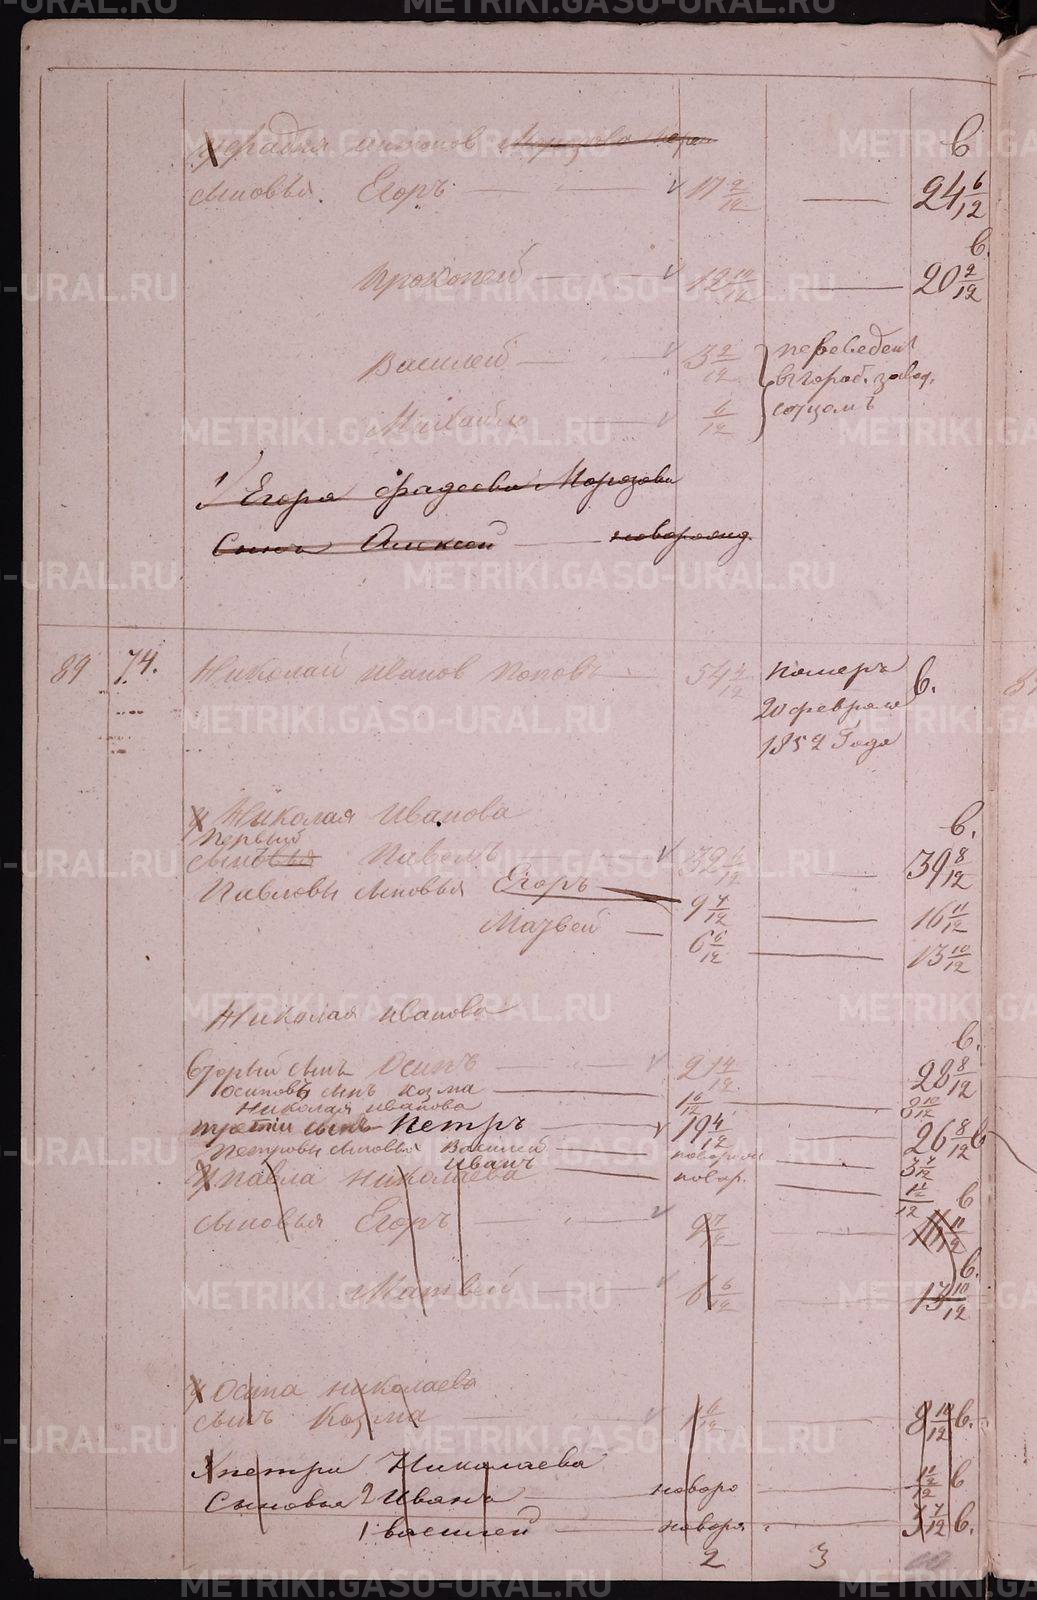 сыновья Егоръ 17 2/12 24 6/12
в
Прокопей 12 10/12 20 2/12
Василей 3 2/12 переведенъ
Михайло 6/12
Егора Фадеева Морозова
Сынъ Алексей новорожд.
89 74. Николай Иванов Попов 54 Померъ в.
20 февраля
1852 Года
у Николая Иванова в.
первый
сыновья Павелъ 32 39 8/12
Павловы сыновья Егоръ 9 7/12 16 11/12
Матвей 6 6/12 13 10/12
Николая Иванова в.
вторый сынъ Осипъ 28 8/12
осиповъ сынъ Козма 1 6/12 8 10/12
Николая Иванова
третий сынъ Петръ 19 4/12 26 8/12 в
Петровы сыновья Василей 3 7/12
Иванъ новор. 11/12
у Павла Николаева в
сыновья Егоръ 9 7/12 16 11/12
в.
Матвей 6 6/12 13 10/12
у Осипа Николаева
сынъ Козма 1 6/12 8 10/12 в.
у петра Николаева
Сыновья 2 Иванъ новоро 11/12 в
1 василей новоро 3 7/12 в.
2 3
METRIKI.GASO-URAL.RU